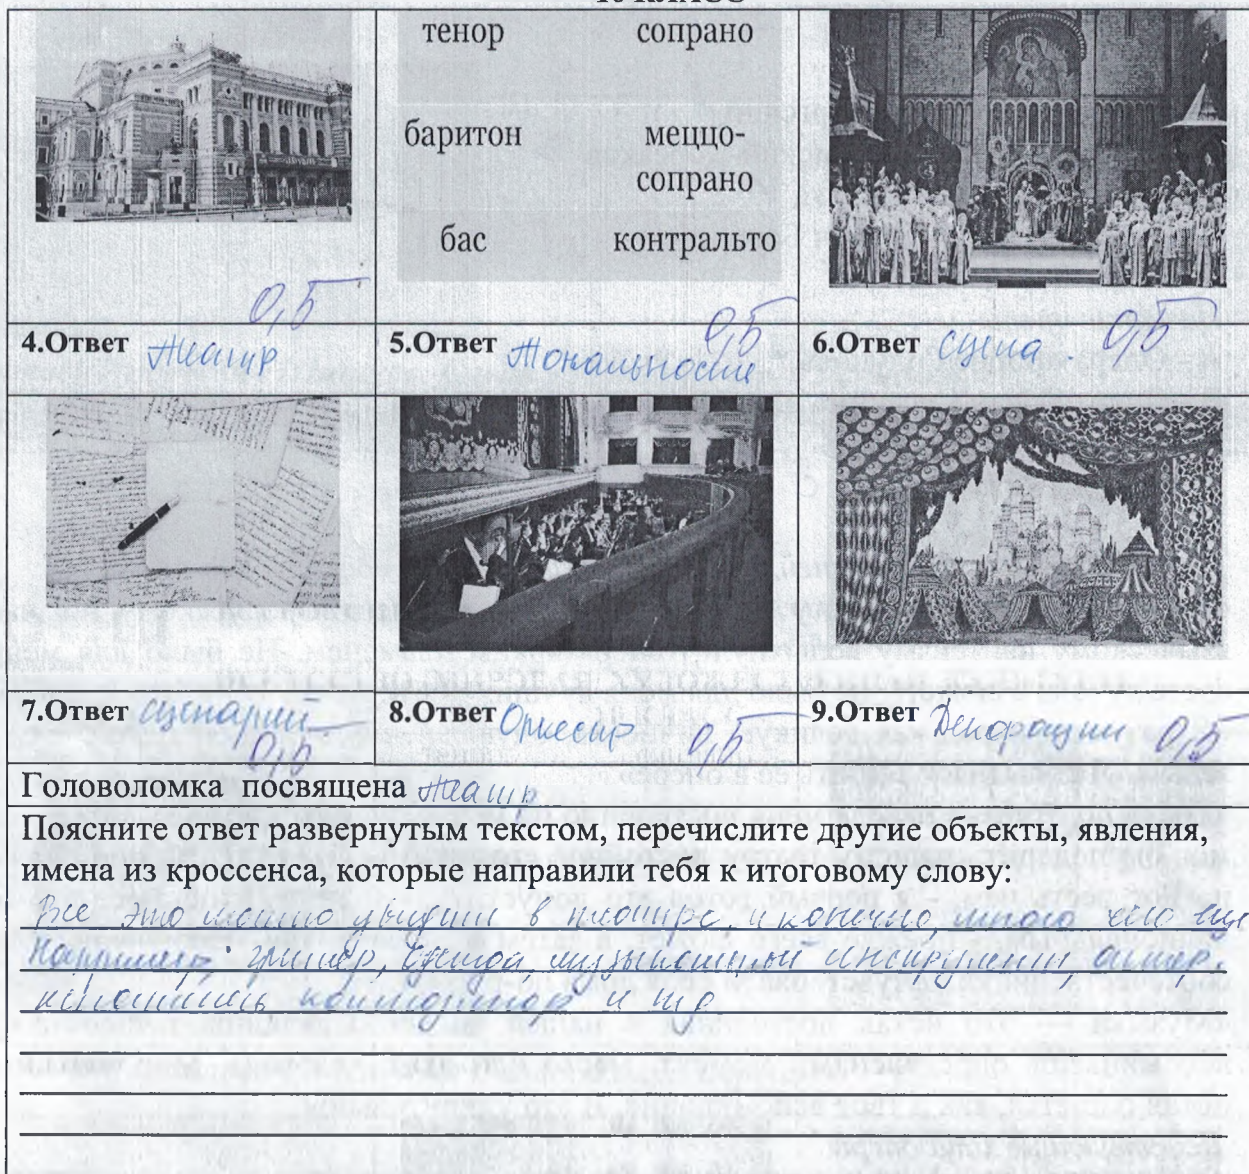 тенор сопрано
баритон меццо-
сопрано
бас контральто
0,5 0,5 0,5
4.Ответ Театр 5.Ответ Тональности 6.Ответ Сцена.
7.Ответ Сценарий 8.Ответ Оркестр 9.Ответ Декорации
0,5 0,5 0,5
Головоломка посвящена театр
Поясните ответ развернутым текстом, перечислите другие объекты, явления,
имена из кроссенса, которые направили тебя к итоговому слову:
Все это можно увидеть в театре, и конечно, много чего еще
Например, гримёр, одежда, музыкальный инструмент, актер,
композитор и тд